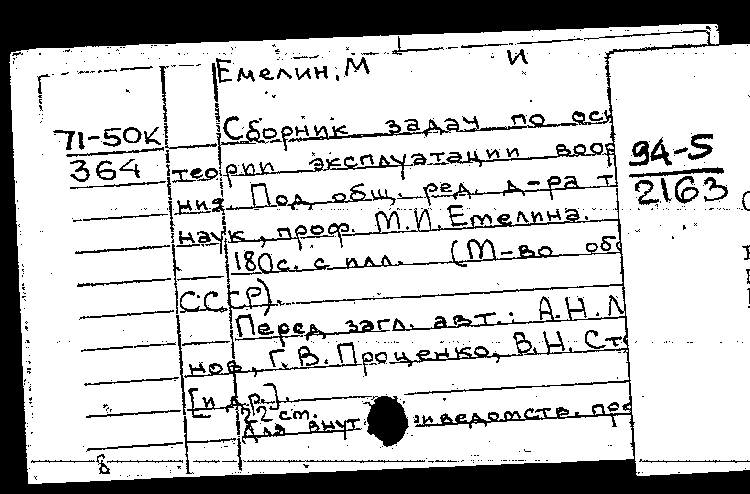 Емелин, М И
71-50К
364
Сборник задач по осн
теории эксплуатации воор
ния. Под общ. ред. д-ра т
наук, проф. М.И. Емелина.
180с. с илл. (М-во обо
СССР).
Перед загл. авт.:
нов, Г. В. Проценко, В.Н. Сто
[и др.].
22 ст.
Для внут ведомств.
94-5
2163